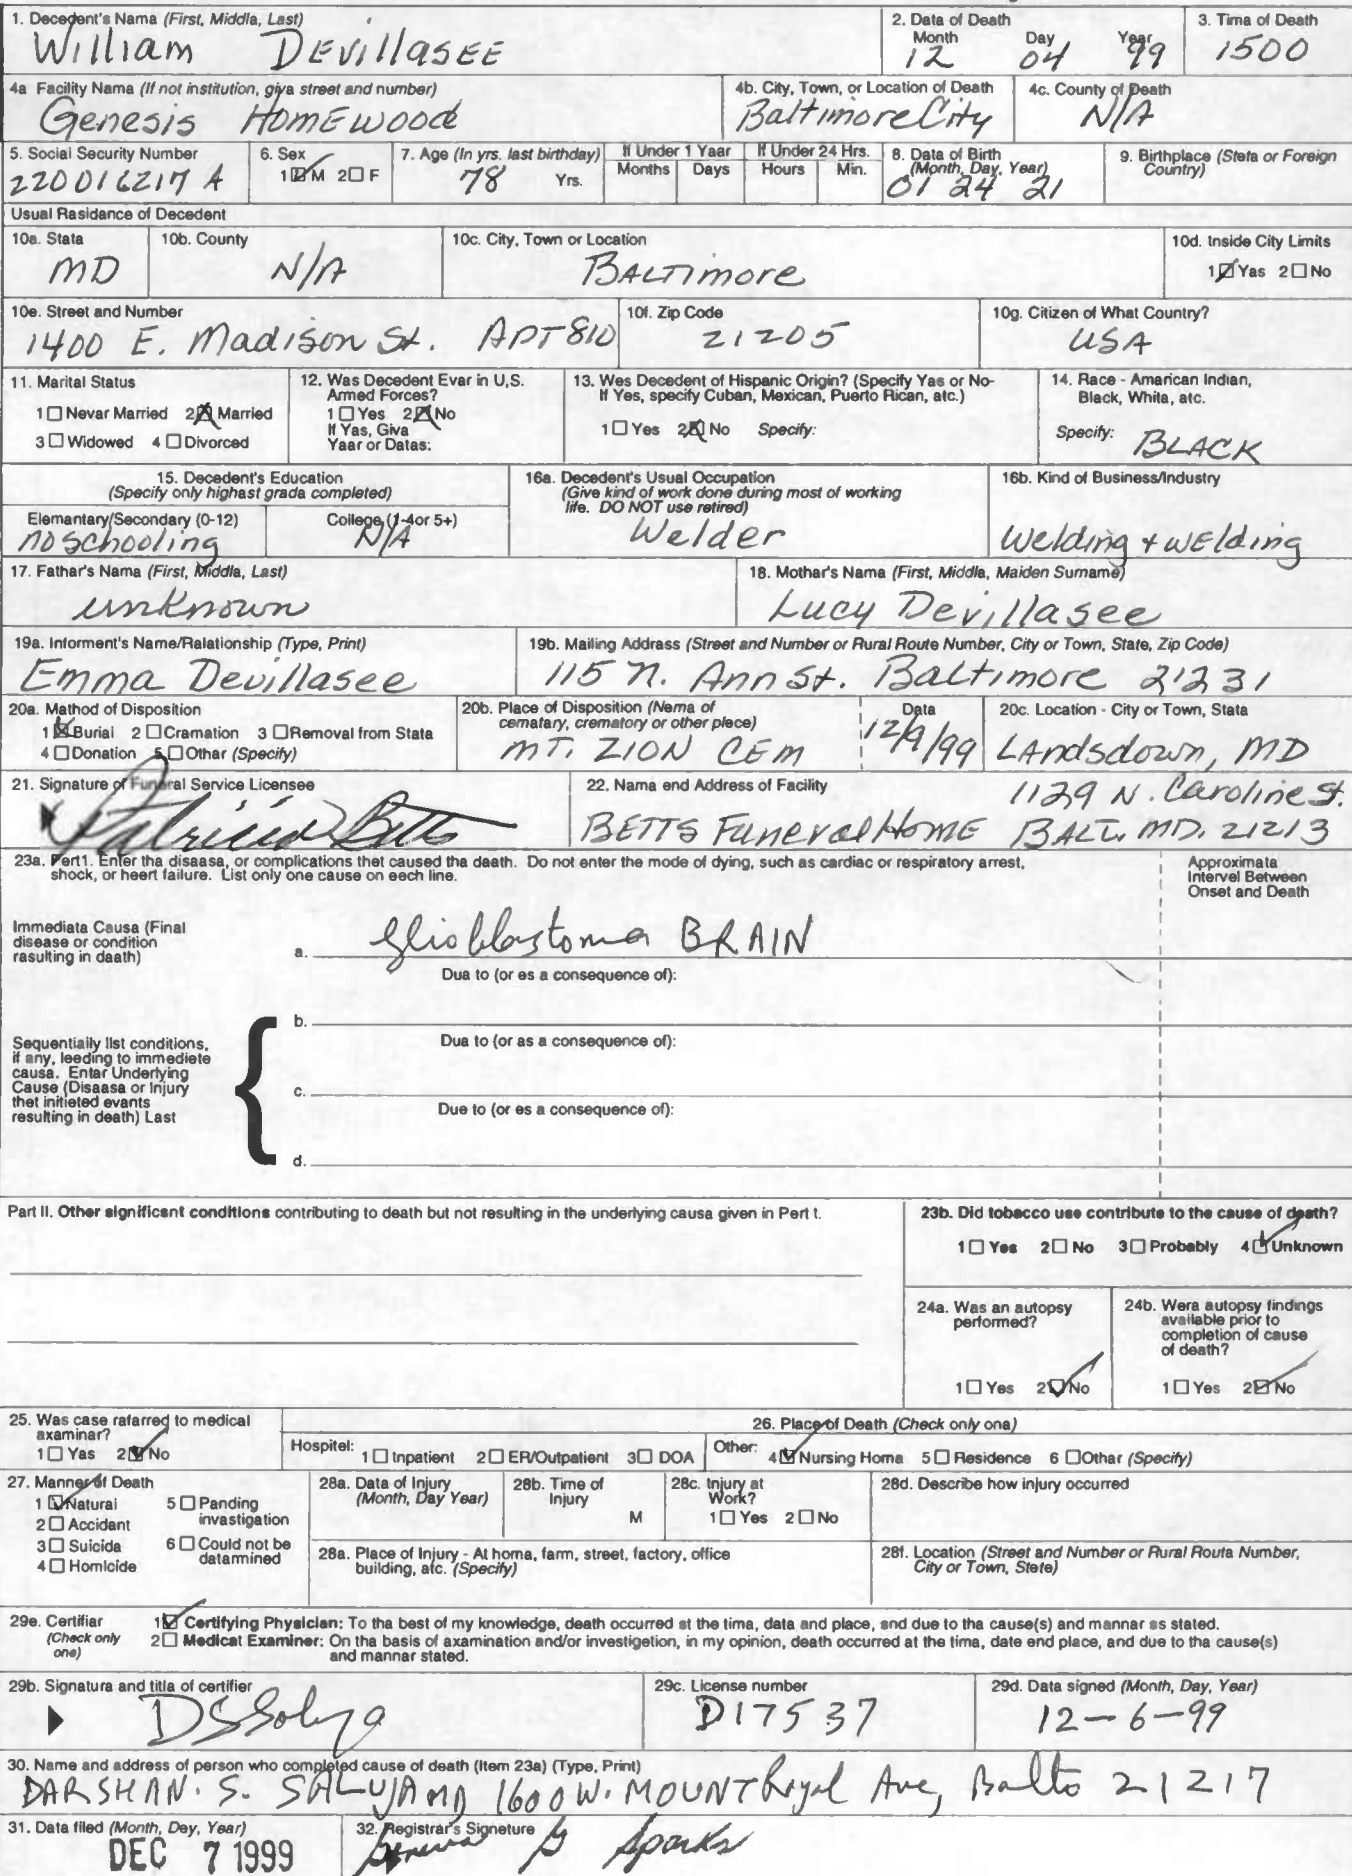 1. Decedent's Name (First, Middla, Last)
William Devillasee
2. Data of Death
Month Day Year
12 04 99
3. Tima of Death
1500
4a Facility Name (If not institution, giva street and number)
Genesis Homewood
4b. City, Town, or Location of Death
Baltimore City
4c. County of Death
N/A
5. Social Security Number
220016217 A
6. Sex
1☑M 2☐F
7. Age (In yrs. last birthday)
78 Yrs.
If Under 1 Yaar
Months Days
If Under 24 Hrs.
Hours Min.
8. Data of Birth
(Month, Day, Year)
01 24 21
9. Birthplace (Steta or Foreign
Country)
Usual Rasidance of Decedent
10a. Stata
MD
10b. County
N/A
10c. City, Town or Location
Baltimore
10d. Inside City Limits
1☑Yas 2☐No
10e. Street and Number
1400 E. Madison St. APT 810
10f. Zip Code
21205
10g. Citizen of What Country?
USA
11. Marital Status
1☐Nevar Married 2☒Married
3☐Widowed 4☐Divorced
12. Was Decedent Evar in U.S.
Armed Forces?
1☐Yes 2☒No
If Yas, Giva
Yaar or Datas:
13. Wes Decedent of Hispanic Origin? (Specify Yas or No-
If Yes, specify Cuban, Mexican, Puerto Rican, atc.)
1☐Yes 2☒No Specify:
14. Race - Amarican Indian,
Black, Whita, atc.
Specify: BLACK
15. Decedent's Education
(Specify only highest grada completed)
Elemantary/Secondary (0-12)
no schooling
College (1-4or 5+)
N/A
16a. Decedent's Usual Occupation
(Give kind of work done during most of working
life. DO NOT use retired)
Welder
16b. Kind of Business/Industry
Welding + welding
17. Fathar's Name (First, Middla, Last)
unknown
18. Mothar's Name (First, Middla, Maiden Surname)
Lucy Devillasee
19a. Informent's Name/Ralationship (Type, Print)
Emma Devillasee
19b. Mailing Address (Street and Number or Rural Route Number, City or Town, State, Zip Code)
115 N. Ann St. Baltimore 21231
20a. Mathod of Disposition
1☒Burial 2☐Cramation 3☐Removal from Stata
4☐Donation 5☐Othar (Specify)
20b. Place of Disposition (Nema of
cematary, crematory or other plece)
MT. ZION CEM
Data
12/9/99
20c. Location - City or Town, Stata
Landsdown, MD
21. Signature of Funeral Service Licensee
Patricia Betts
22. Name end Address of Facility
1129 N. Caroline St.
BETTS Funeral Home BALT. MD. 21213
23a. Pert1. Enter tha disaasa, or complications thet caused tha daath. Do not enter the mode of dying, such as cardiac or respiratory arrest,
shock, or heert failure. List only one cause on eech line.
Approximata
Intervel Between
Onset and Death
Immediata Causa (Final
disease or condition
rasulting in daath)
a. glioblastoma BRAIN
Dua to (or es a consequence of):
b.
Dua to (or as a consequence of):
Sequentially list conditions,
if any, leeding to immediete
causa. Entar Underlying
Cause (Disaasa or Injury
thet initieted evants
resulting in death) Last
c.
Due to (or es a consequence of):
d.
Part II. Other significant conditions contributing to death but not resulting in the underlying causa given in Pert I.
23b. Did tobacco use contribute to the cause of death?
1☐Yes 2☐No 3☐Probably 4☑Unknown
24a. Was an autopsy
performed?
1☐Yes 2☑No
24b. Wera autopsy findings
available prior to
completion of cause
of death?
1☐Yes 2☑No
25. Was case rafarred to medical
axaminar?
1☐Yas 2☑No
26. Place of Death (Check only ona)
Hospitel: 1☐Inpatient 2☐ER/Outpatient 3☐DOA Other: 4☑Nursing Homa 5☐Residence 6☐Othar (Specify)
27. Manner of Death
1☑Natural 5☐Panding
invastigation
2☐Accidant
3☐Suicida 6☐Could not be
datarmined
4☐Homicide
28a. Data of Injury
(Month, Day Year)
28b. Time of
Injury
M
28c. Injury at
Work?
1☐Yes 2☐No
28d. Describe how injury occurred
28a. Placa of Injury - At homa, farm, street, factory, office
building, atc. (Specify)
28f. Location (Street and Number or Rural Routa Number,
City or Town, Stete)
29e. Certifiar
(Check only
ona)
1☑Certifying Physician: To tha best of my knowledge, death occurred at the tima, data and place, and due to tha cause(s) and mannar as stated.
2☐Medical Examiner: On tha basis of axamination and/or investigetion, in my opinion, death occurred at the tima, date end place, and due to tha cause(s)
and mannar stated.
29b. Signatura and titla of certifier
29c. License number
D17537
29d. Data signed (Month, Day, Year)
12-6-99
30. Name and address of person who completed cause of death (Item 23a) (Type, Print)
DARSHAN. S. SALUJA MD 1600 W. MOUNT Royal Ave, Balto 21217
31. Data filed (Month, Dey, Year)
DEC 7 1999
32. Registrar's Signature
Sparks